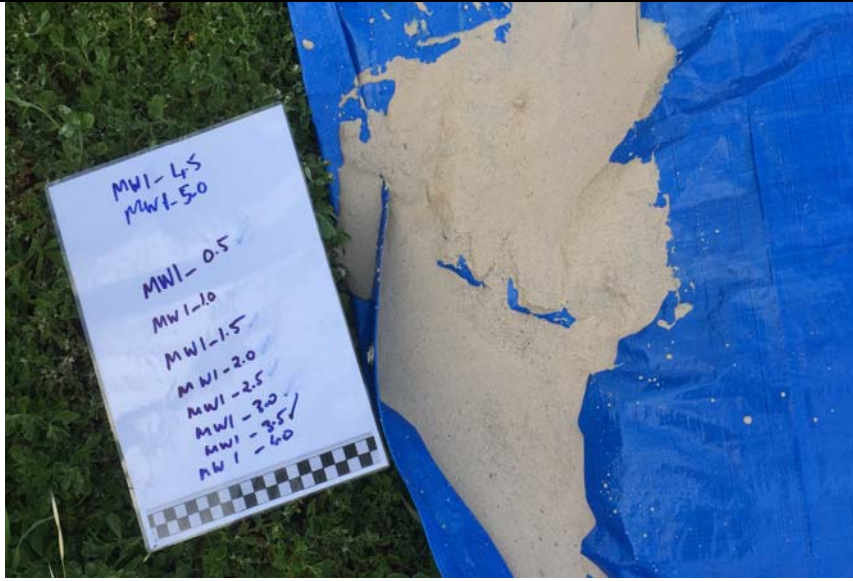 MW1-4.5
MW1-5.0
MW1-0.5
MW1-1.0
MW1-1.5
MW1-2.0
MW1-2.5
MW1-3.0
MW1-3.5
MW1-4.0